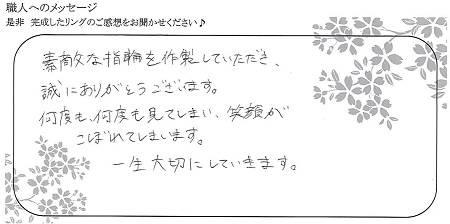 職人へのメッセージ
是非 完成したリングのご感想をお聞かせください♪
素敵な指輪を作製していただき、
誠にありがとうございます。
何度も、何度も見てしまい、笑顔が
こぼれてしまいます。
一生大切にしていきます。